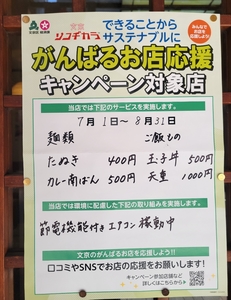 文京
ソコヂカラ
できることから
サステナブルに
がんばるお店応援
キャンペーン対象店
当店では下記のサービスを実施します。
7月1日〜8月31日
麺類 ご飯もの
たぬき 400円 玉子丼 500円
カレー南ばん 500円 天重 1000円
当店では環境に配慮した下記の取り組みを実施します。
節電機能付きエアコン稼動中
文京のがんばるお店を応援しよう!!
口コミやSNSでお店の応援をお願いします!
キャンペーン参加店など
詳しくはこちらから